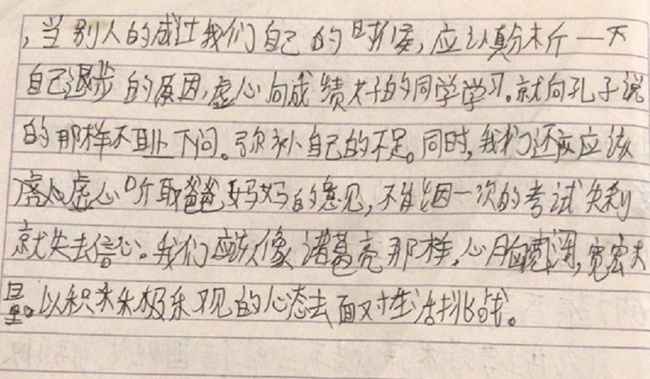 ，当别人的成过我们自己的时候，应认真分析一下
自己退步的原因，虚心向成绩好的同学学习。就向孔子说
的那样不耻下问。弥补自己的不足。同时，我们还应应该
虚心虚心听取爸爸妈妈的意见，不能因一次的考试失利
就失去信心。我们应该像诸葛亮那样，心胸宽阔，宽宏大
量。以积来来极乐观的心态去面对生活挑战。